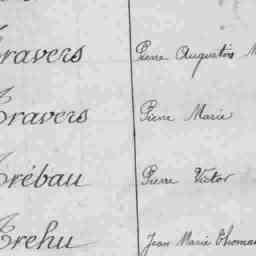 Travers Pierre Augustin M
Travers Pierre Marie
Trébau Pierre Victor
Trehu Jean Marie Thomas